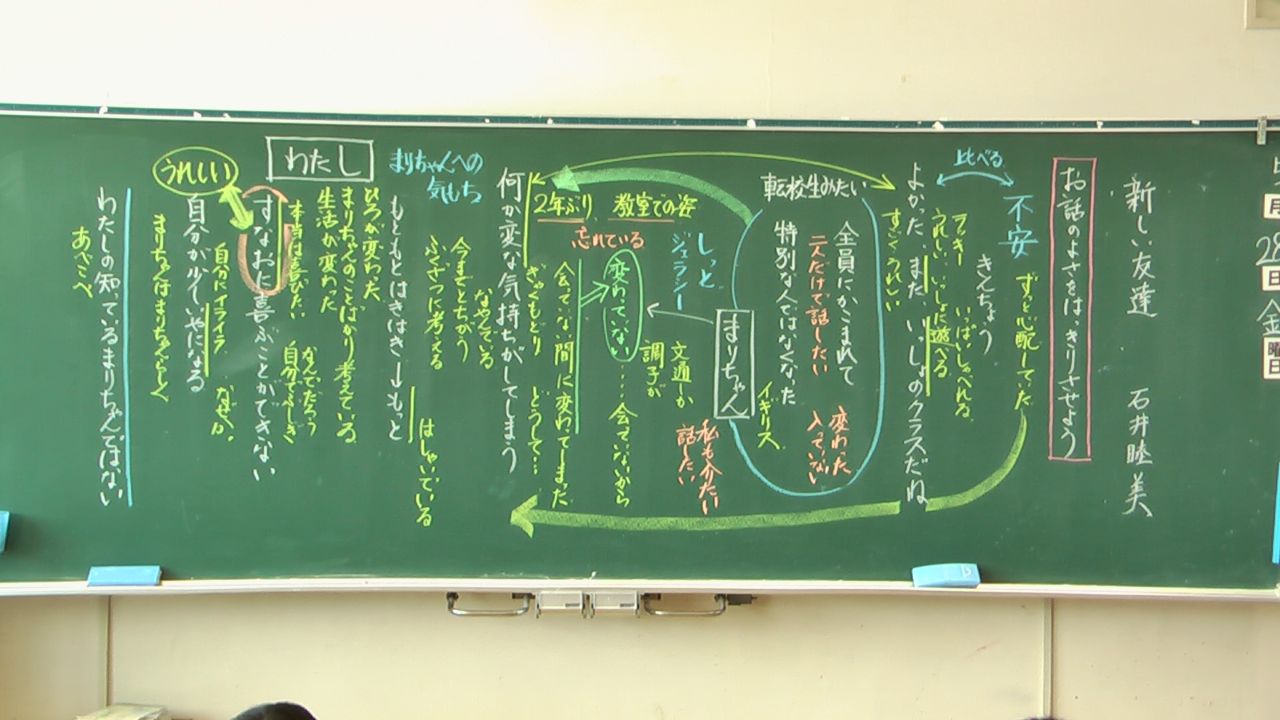 新しい友達 石井睦美
お話のよさをはっきりさせよう
比べる
不安
ずっと心配していた
きんちょう
いっぱいしゃべれる
うれしい いっしょに遊べる
よかった、また いっしょのクラスだね
すごくうれしい
転校生みたい
全員にかこまれて
二人だけで話したい
変わった
入っていない
特別な人ではなくなった
イギリス
まりちゃん
しっと
ジェラシー
文通しか
調子が
私も介たい
話したい
2年ぶり 教室での姿
忘れている
変わっていない……会っていないから
会っていない間に変わってしまった
ぎゃくもどり どうして…
何か変な気持ちがしてしまう
まりちゃんへの
気もち
なやんでいる
今までとちがう
ふくざつに考える
はしゃいでいる
もともとはきはき→もっと
わたし
ひろが変わった
まりちゃんのことばかり考えている
生活が変わった
本当は喜びたい
なんでだろう
自分でふしぎ
すなおに喜ぶことができない
うれしい
自分にイライラ なぜか。
自分が少しいやになる
まりちゃんはまりちゃんらしく
わたしの知っているまりちゃんではない
あべこべ
月
28
日
金
曜
日